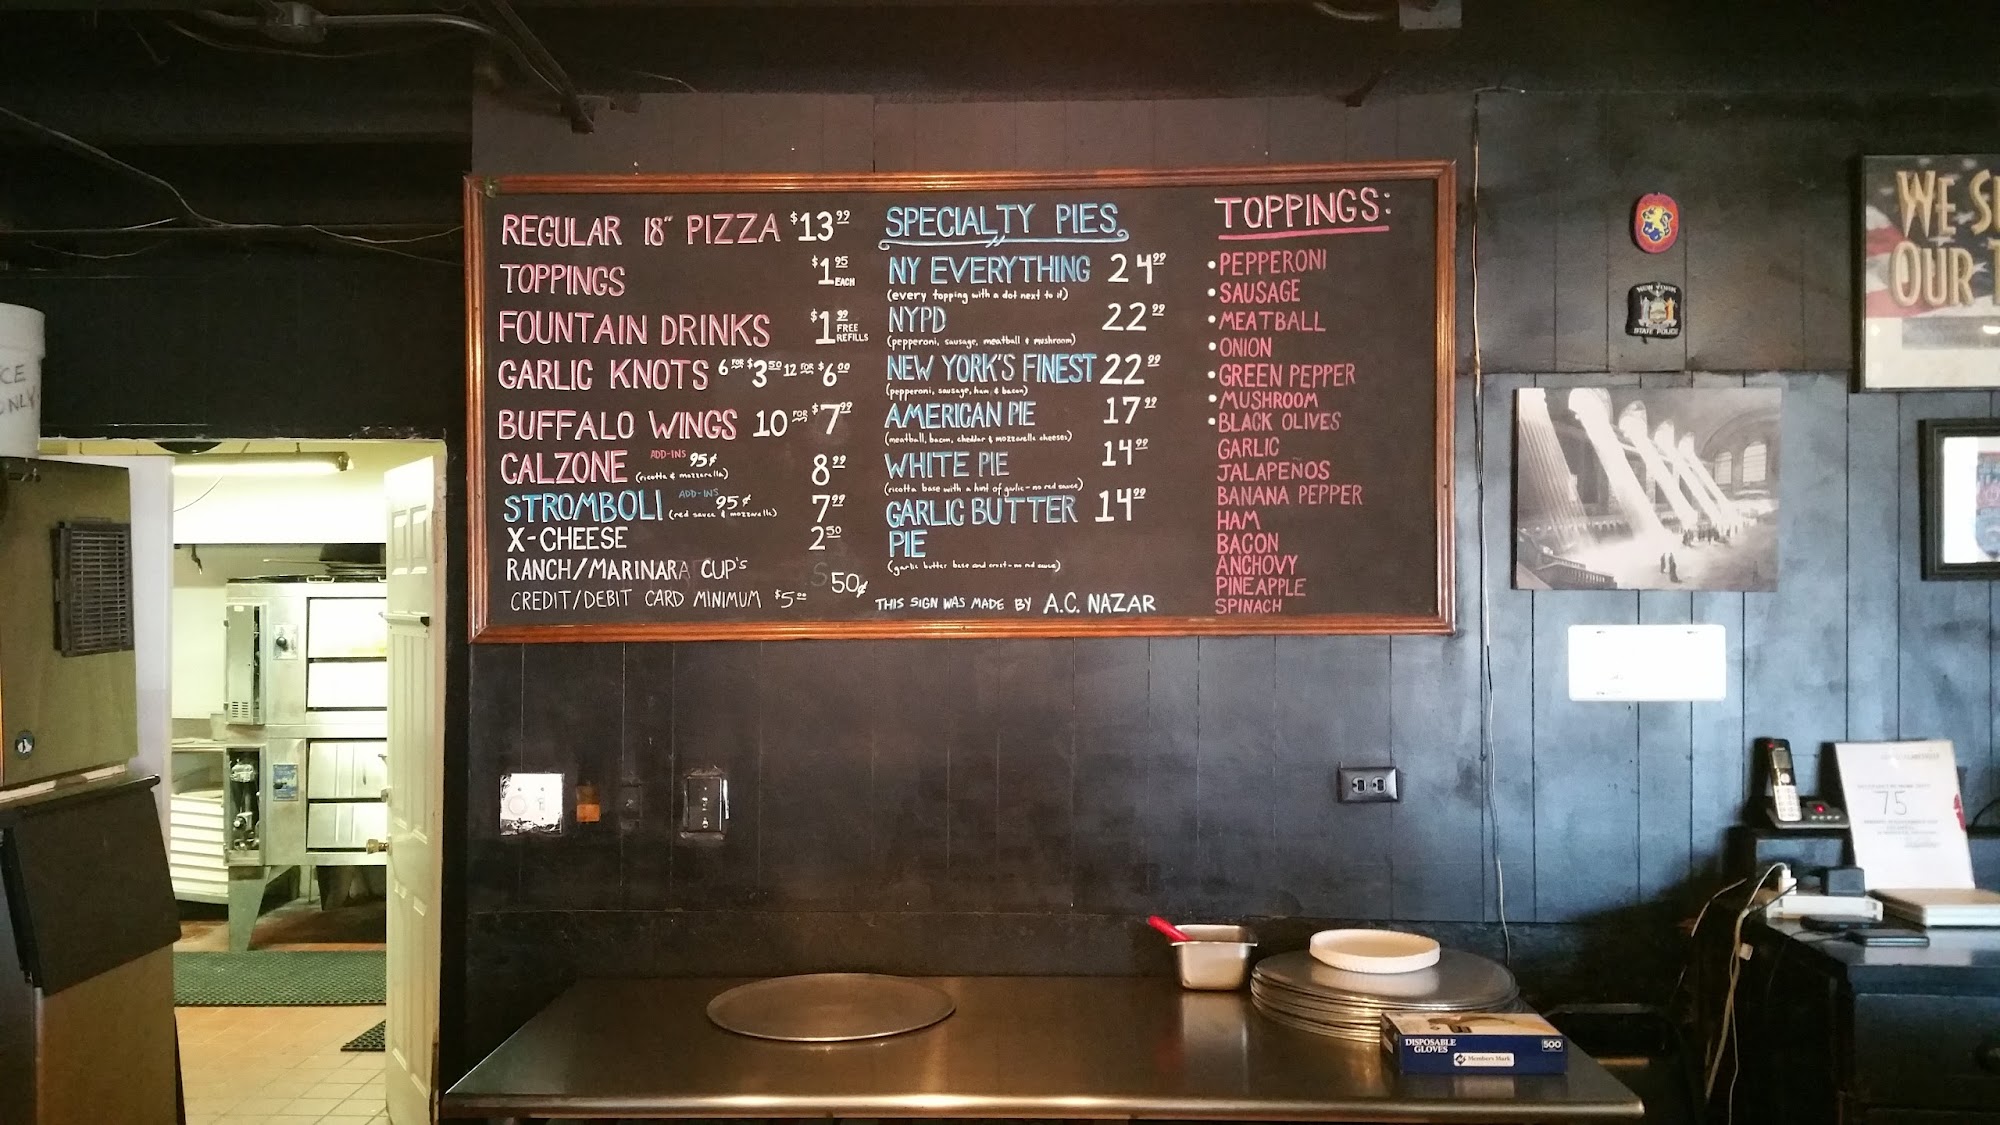 REGULAR 18" PIZZA $13.99
TOPPINGS $1.95 EACH
FOUNTAIN DRINKS $1.99 FREE REFILLS
GARLIC KNOTS 6 FOR $3.50 12 FOR $6.00
BUFFALO WINGS 10 FOR $7.99
CALZONE ADD-INS 95¢ (ricotta & mozzarella) 8.99
STROMBOLI ADD-INS 95¢ (red sauce & mozzarella) 7.99
X-CHEESE 2.50
RANCH/MARINARA CUP'S 50¢
CREDIT/DEBIT CARD MINIMUM $5.00
SPECIALTY PIES
NY EVERYTHING 24.99
(every topping with a dot next to it)
NYPD 22.99
(pepperoni, sausage, meatball & mushroom)
NEW YORK'S FINEST 22.99
(pepperoni, sausage, ham & bacon)
AMERICAN PIE 17.99
(meatball, bacon, cheddar & mozzarella cheeses)
WHITE PIE 14.99
(ricotta base with a hint of garlic - no red sauce)
GARLIC BUTTER 14.99
PIE
(garlic butter base and crust - no red sauce)
THIS SIGN WAS MADE BY A.C. NAZAR
TOPPINGS:
• PEPPERONI
• SAUSAGE
• MEATBALL
• ONION
• GREEN PEPPER
• MUSHROOM
• BLACK OLIVES
GARLIC
JALAPEÑOS
BANANA PEPPER
HAM
BACON
ANCHOVY
PINEAPPLE
SPINACH
NEW YORK
STATE POLICE
WE
OUR
ONLY
75
DISPOSABLE
GLOVES
500
Member's Mark